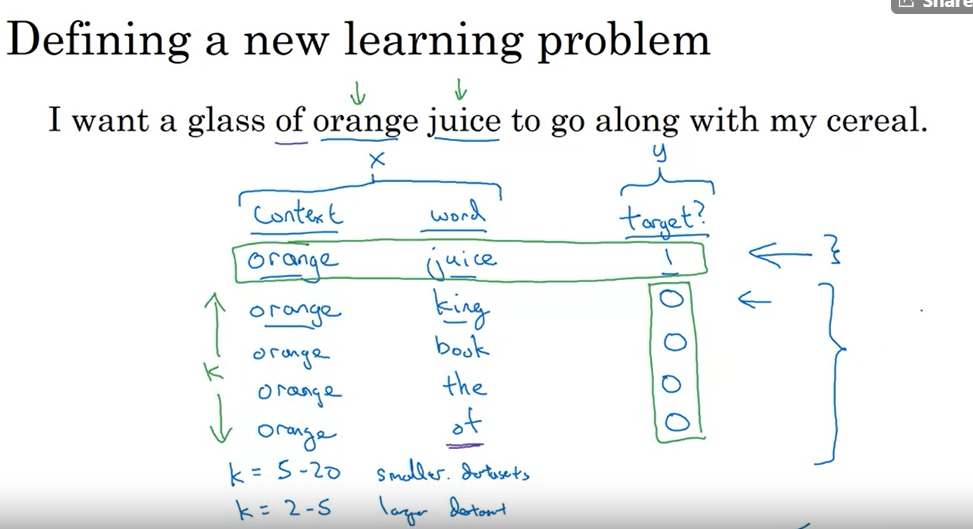 Share
Defining a new learning problem
I want a glass of orange juice to go along with my cereal.
x y
context word target?
orange juice 1
orange king 0
orange book 0
k
orange the 0
orange of 0
k = 5-20 smaller. datasets
k = 2-5 larger dataset